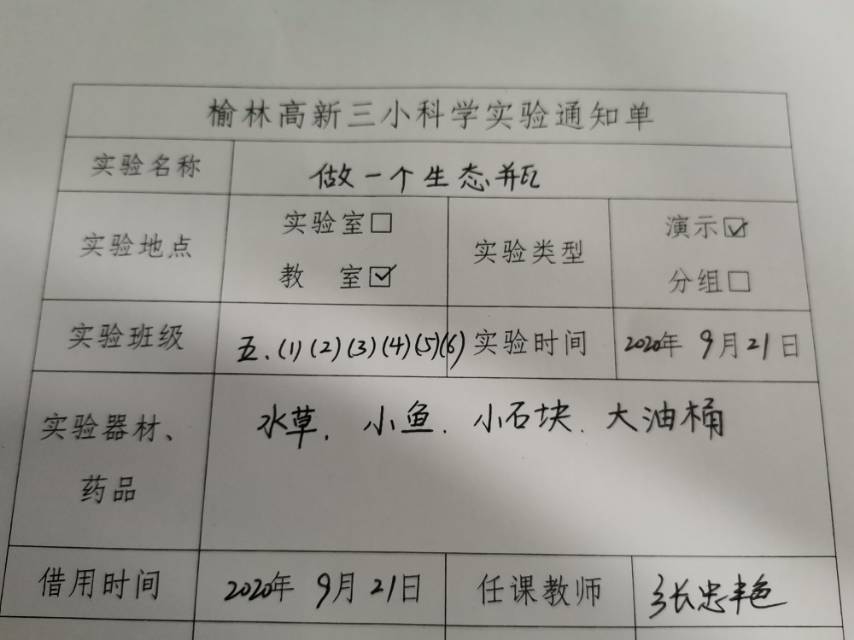 榆林高新三小科学实验通知单
实验名称 做一个生态瓶
实验地点 实验室□ 教 室☑ 实验类型 演示☑ 分组□
实验班级 五.(1)(2)(3)(4)(5)(6) 实验时间 2020年 9月21日
实验器材、药品 水草. 小鱼. 小石块. 大油桶
借用时间 2020年 9月21日 任课教师 张忠艳